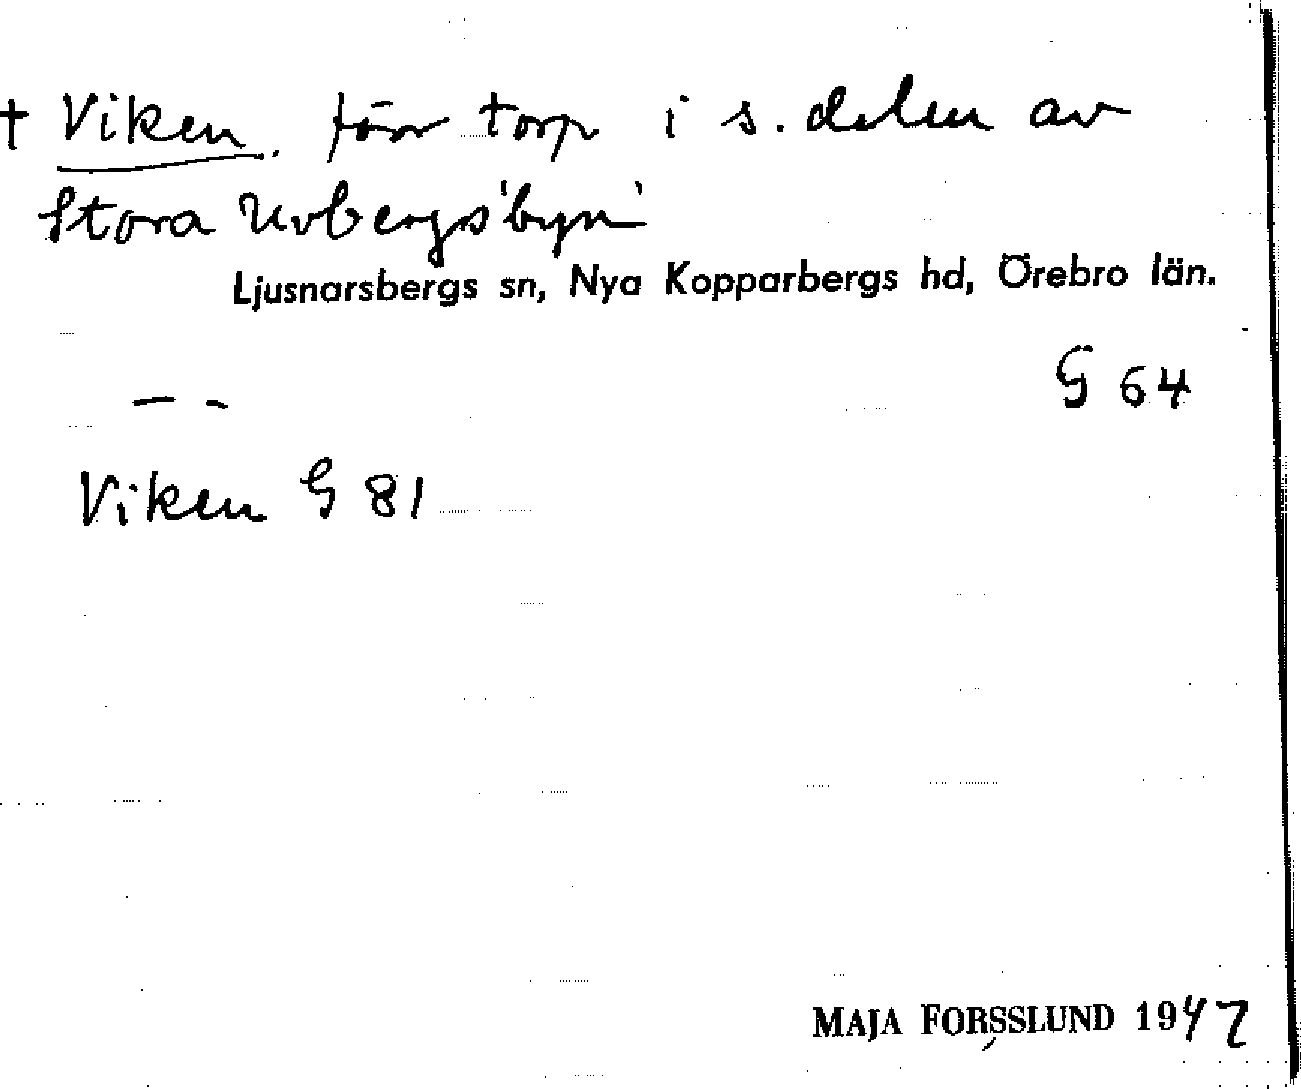 † Viken. förr torp i s. delen av
Stora Uvbergs'byn'
Ljusnarsbergs sn, Nya Kopparbergs hd, Örebro län.
G 64
— -
Viken G 81
MAJA FORSSLUND 1947